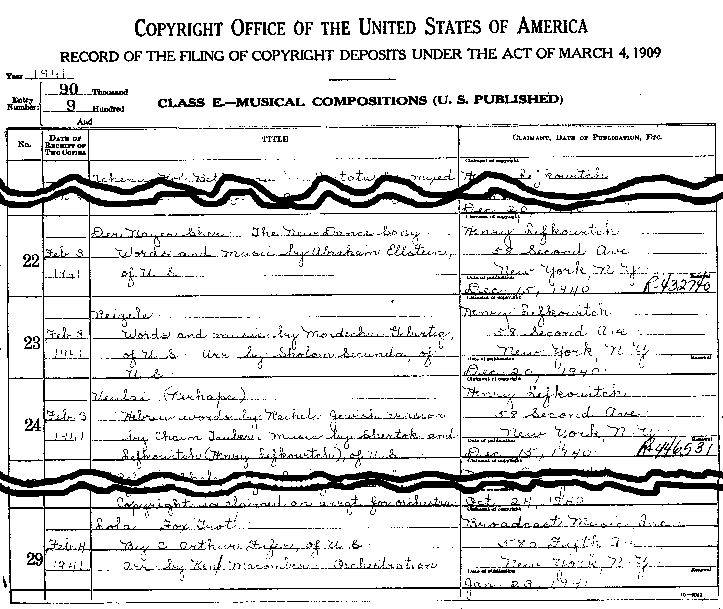 COPYRIGHT OFFICE OF THE UNITED STATES OF AMERICA
RECORD OF THE FILING OF COPYRIGHT DEPOSITS UNDER THE ACT OF MARCH 4, 1909
Year 1941
Entry Number: 90 Thousand
9 Hundred
And
CLASS E.—MUSICAL COMPOSITIONS (U. S. PUBLISHED)
No. DATE OF RECEIPT OF TWO COPIES TITLE CLAIMANT, DATE OF PUBLICATION, ETC.
Claimant of copyright
Lefkowitch
Claimant of copyright
22
Feb 3
1941
Der Nayer Sher The New Dance Song
Words and music by Abraham Ellstein,
of U S
Henry Lefkowitch
58 Second Ave
New York, N Y
Date of publication Renewal
Dec 15, 1940 R 432740
Claimant of copyright
23
Feb 3
1941
Reizele
Words and music by Mordecai Gebirtig,
of U S Arr by Sholom Secunda, of
U S
Henry Lefkowitch
58 Second Ave
New York, N Y
Date of publication Renewal
Dec 20, 1940
Claimant of copyright
24
Feb 3
1941
(Perhaps)
Hebrew words by Rachel Jewish version
by Chaim Tauber, music by Shertok and
Lefkowitch (Henry Lefkowitch), of U S
Henry Lefkowitch
58 Second Ave
New York, N Y
Date of publication Renewal
Dec 15, 1940 R 446531
Copyright is claimed on arrgt for orchestra
Oct 24, 1940
Claimant of copyright
29
Feb 4
1941
Lola Fox Trot
By C Arthur Fifer, of U S
Arr by Ken Macomber Orchestration
Broadcast Music Inc
580 Fifth Ave
New York, N Y
Date of publication Renewal
Jan 23, 1941